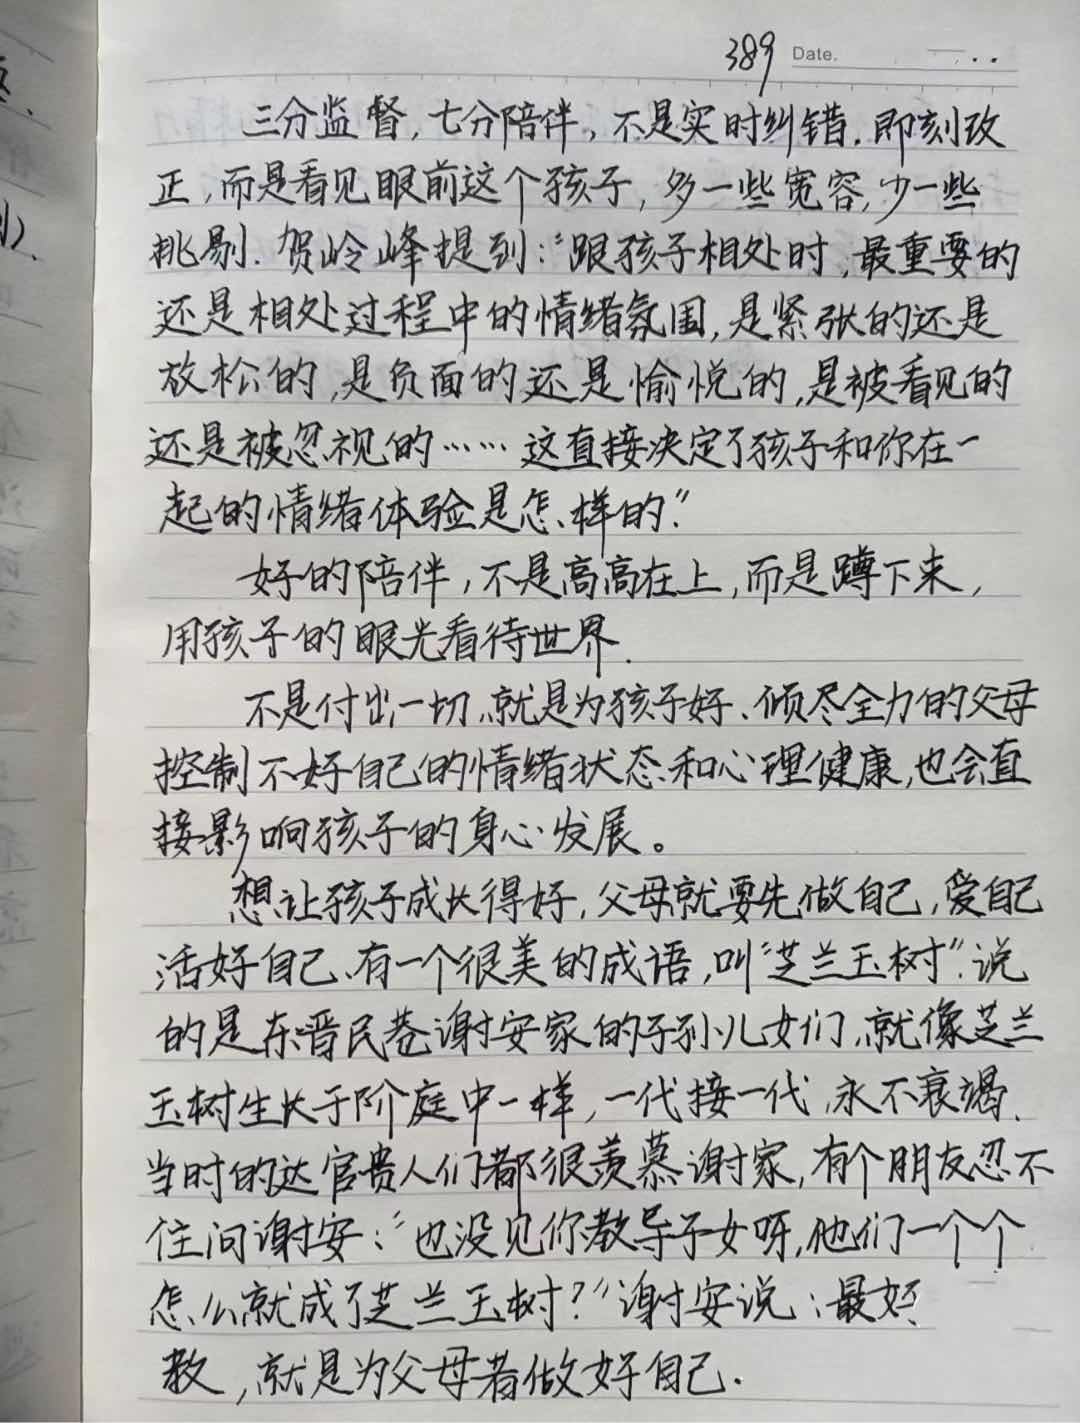 389 Date.
三分监督,七分陪伴,不是实时纠错.即刻改
正,而是看见眼前这个孩子,多一些宽容,少一些
挑剔.贺岭峰提到:“跟孩子相处时,最重要的
还是相处过程中的情绪氛围,是紧张的还是
放松的,是负面的还是愉悦的,是被看见的
还是被忽视的……这直接决定了孩子和你在一
起的情绪体验是怎样的.”
好的陪伴,不是高高在上,而是蹲下来,
用孩子的眼光看待世界.
不是付出一切,就是为孩子好、倾尽全力的父母
控制不好自己的情绪状态和心理健康,也会直
接影响孩子的身心发展。
想让孩子成长得好,父母就要先做自己,爱自己
活好自己、有一个很美的成语,叫“芝兰玉树”.说
的是东晋民巷谢安家的子孙儿女们,就像芝兰
玉树生长于阶庭中一样,一代接一代,永不衰竭.
当时的达官贵人们都很羡慕谢家,有个朋友忍不
住问谢安:“也没见你教导子女呀,他们一个个
怎么就成了芝兰玉树?”谢安说:最好
教,就是为父母者做好自己.